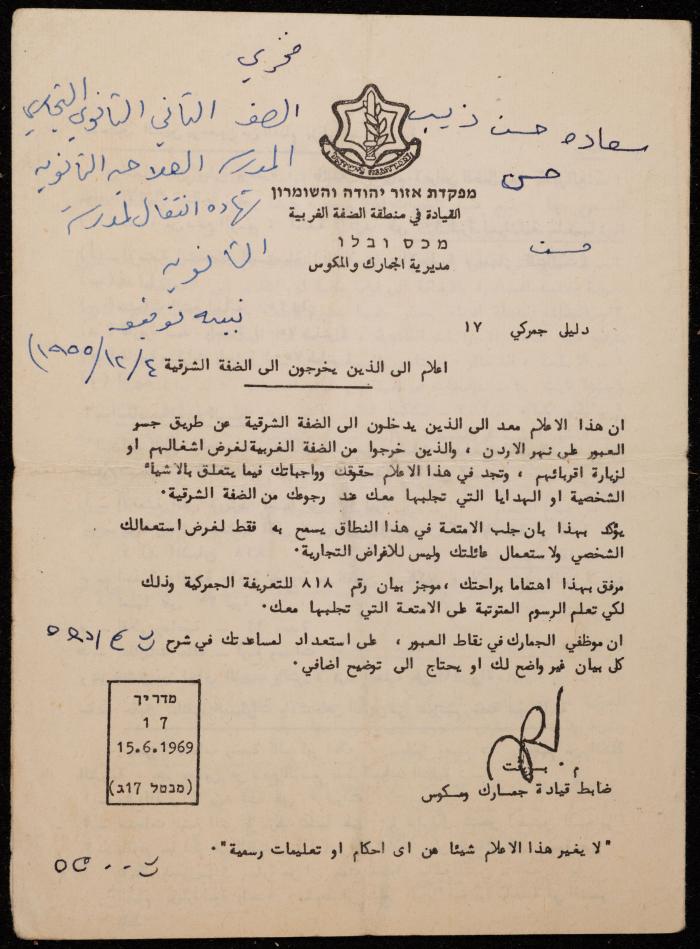 فخري
الصف الثاني الثانوي التجاري
سعاده حسن ذيب
المدرسه الصلاحيه الثانويه
حسن
מפקדת אזור יהודה והשומרון
القيادة في منطقة الضفة الغربية
شهاده انتقال لمدرسة
מכס ובלו
مديرية الجمارك والمكوس
الثانويه
نبيه توفيق
دليلى جمركي ١٧
(١٩٥٥/١٢/٤
اعلام الى الذين يخرجون الى الضفة الشرقية
ان هذا الاعلام معد الى الذين يدخلون الى الضفة الشرقية عن طريق جسو
العبور على نهر الاردن ، والذين خرجوا من الضفة الغربية لغرض اشغالهم او
لزيارة اقربائهم ، وتجد في هذا الاعلام حقوقك وواجباتك فيما يتعلق بالاشياء
الشخصية او الهدايا التي تجلبها معك عند رجوعك من الضفة الشرقية.
يؤكد بهذا بان جلب الامتعة في هذا النطاق يسمح به فقط لغرض استعمالك
الشخصي ولاستعمال عائلتك وليس للاغراض التجارية.
مرفق بهذا اهتماما براحتك ، موجز بيان رقم ٨١٨ للتعريفة الجمركية وذلك
لكي تعلم الرسوم المترتبة على الامتعة التي تجلبها معك.
ان موظفي الجمارك في نقاط العبور ، على استعداد لمساعدتك في شرح
كل بيان غير واضح لك او يحتاج الى توضيح اضافي.
מדריך
17
15.6.1969
(מבטל 17ג)
م. بريقت
ضابط قيادة جمارك ومكوس
"لا يغير هذا الاعلام شيئا عن اى احكام او تعليمات رسمية".